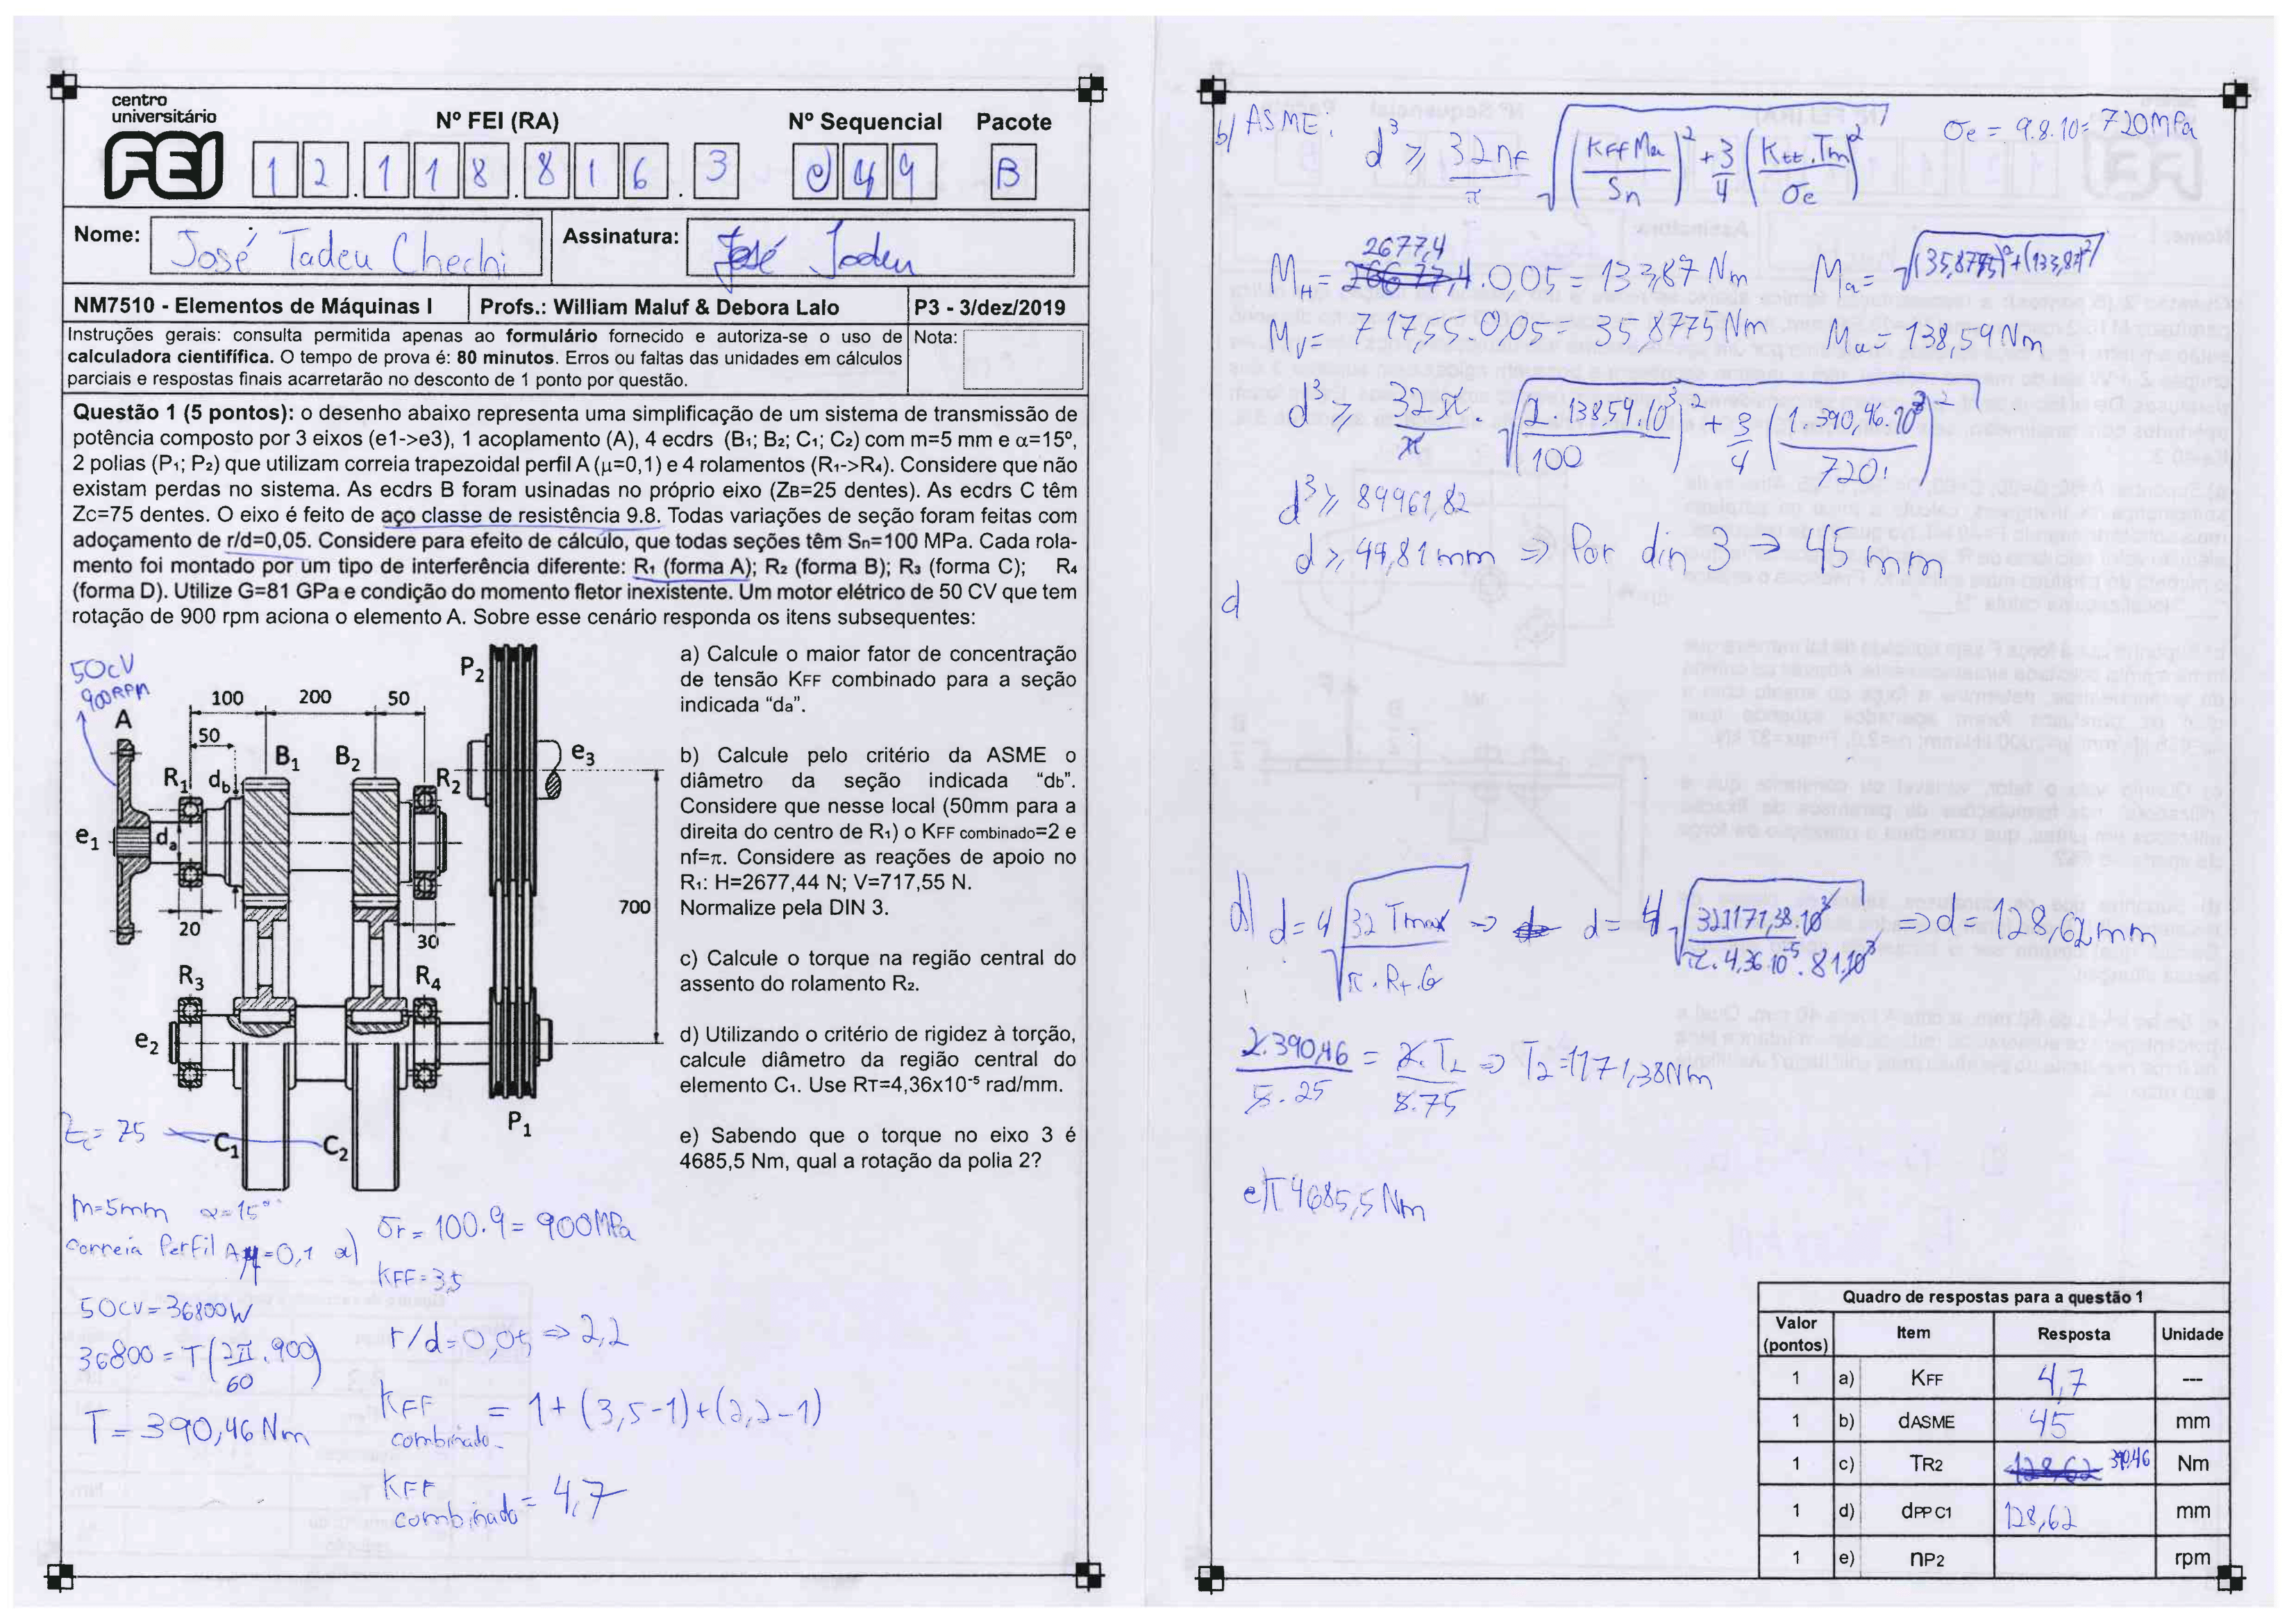 centro
universitário
FEI
Nº FEI (RA)
Nº Sequencial
Pacote
12.118.816.3
049
B
Nome:
José Tadeu Chechi
Assinatura:
José Tadeu
NM7510 - Elementos de Máquinas I
Profs.: William Maluf & Debora Lalo
P3 - 3/dez/2019
Instruções gerais: consulta permitida apenas ao formulário fornecido e autoriza-se o uso de
calculadora cientifífica. O tempo de prova é: 80 minutos. Erros ou faltas das unidades em cálculos
parciais e respostas finais acarretarão no desconto de 1 ponto por questão.
Nota:
Questão 1 (5 pontos): o desenho abaixo representa uma simplificação de um sistema de transmissão de
potência composto por 3 eixos (e1->e3), 1 acoplamento (A), 4 ecdrs (B1; B2; C1; C2) com m=5 mm e α=15º,
2 polias (P1; P2) que utilizam correia trapezoidal perfil A (μ=0,1) e 4 rolamentos (R1->R4). Considere que não
existam perdas no sistema. As ecdrs B foram usinadas no próprio eixo (ZB=25 dentes). As ecdrs C têm
Zc=75 dentes. O eixo é feito de aço classe de resistência 9.8. Todas variações de seção foram feitas com
adoçamento de r/d=0,05. Considere para efeito de cálculo, que todas seções têm Sn=100 MPa. Cada rola-
mento foi montado por um tipo de interferência diferente: R1 (forma A); R2 (forma B); R3 (forma C); R4
(forma D). Utilize G=81 GPa e condição do momento fletor inexistente. Um motor elétrico de 50 CV que tem
rotação de 900 rpm aciona o elemento A. Sobre esse cenário responda os itens subsequentes:
50cV
900RPM
A
100
200
50
50
B1
B2
P2
e3
R1
db
R2
e1
da
20
30
700
R3
R4
e2
P1
C1
C2
Zc= 75
a) Calcule o maior fator de concentração
de tensão KFF combinado para a seção
indicada “da”.
b) Calcule pelo critério da ASME o
diâmetro da seção indicada “db”.
Considere que nesse local (50mm para a
direita do centro de R1) o KFF combinado=2 e
nf=π. Considere as reações de apoio no
R1: H=2677,44 N; V=717,55 N.
Normalize pela DIN 3.
c) Calcule o torque na região central do
assento do rolamento R2.
d) Utilizando o critério de rigidez à torção,
calcule diâmetro da região central do
elemento C1. Use RT=4,36x10⁻⁵ rad/mm.
e) Sabendo que o torque no eixo 3 é
4685,5 Nm, qual a rotação da polia 2?
m=5mm α=15°
correia Perfil A μ=0,1
50cv=36800W
36800 = T(2π.900/60)
T= 390,46 Nm
a) σr= 100.9= 900MPa
KFF=3,5
r/d=0,05 => 2,2
KFF combinado = 1+(3,5-1)+(2,2-1)
KFF combinado = 4,7
b) ASME:
d³ ≥ 32nf/π √((KFF Ma/Sn)² + 3/4 (Ktt.Tm/σe)²)
σe = 9.8.10= 720MPa
MH= 26677,4 .0,05= 133,87 Nm
Ma= √(35,8775)²+(133,87)²
MV= 717,55.0,05= 35,8775Nm
Ma= 138,59Nm
d³ ≥ 32π/π . √((2.138,59.10³/100)² + 3/4 (1.390,46.10³/720)²)
d³ ≥ 89961,82
d ≥ 44,81mm => Por din 3 => 45 mm
d
d) d= 4√(32 Tmax/π.Rt.G) => d= 4√(32.1171,38.10³/π.4,36.10⁻⁵.81.10³) => d= 128,62mm
2.390,46/5.25 = 2.T2/5.75 => T2=1171,38Nm
e) T 4685,5Nm
Quadro de respostas para a questão 1
Valor (pontos) Item Resposta Unidade
1 a) KFF 4,7 ---
1 b) dASME 45 mm
1 c) TR2 128,62 390,46 Nm
1 d) dPP C1 128,62 mm
1 e) nP2 rpm